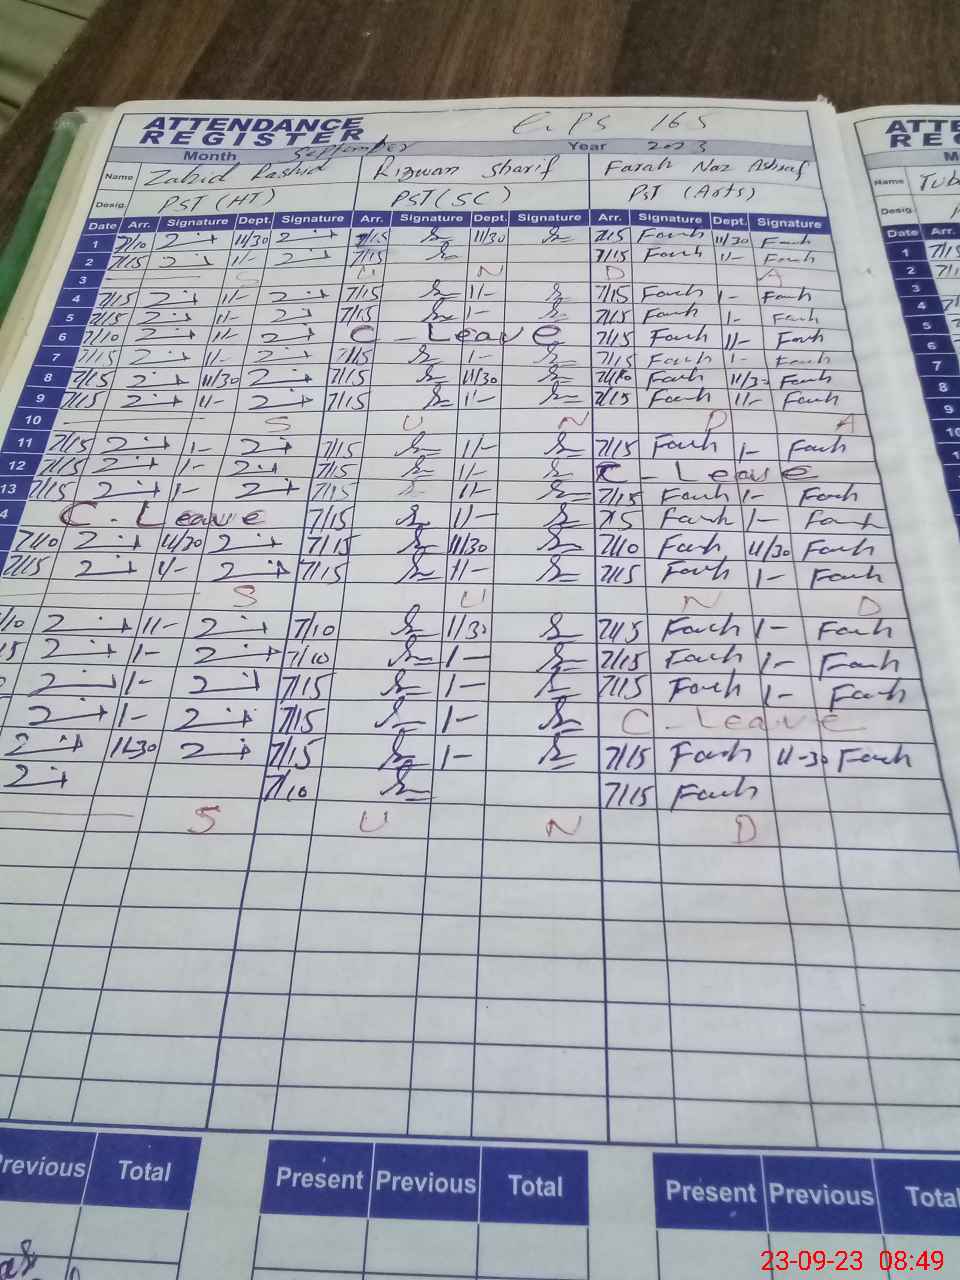 ATTENDANCE REGISTER GPS 165 ATTE RE
Month September Year 2023 M
Name Zahid Rashid Rizwan Sharif Farah Naz Ashraf Name Tub
Desig. PST (HT) PST (SC) PST (Arts) Desig.
Date Arr. Signature Dept. Signature Arr. Signature Dept. Signature Arr. Signature Dept. Signature Date Arr.
1 7/10 11/30 7/15 11/30 7/15 Farah 11/30 Farah 1 7/15
2 7/15 11/- 7/15 7/15 Farah 11/- Farah 2 7/15
3 S U N D A 3
4 7/15 11/- 7/15 11/- 7/15 Farah 1- Farah 4
5 7/15 11/- 7/15 1- 7/15 Farah 1- Farah 5
6 7/10 11/- C - Leave 7/15 Farah 11/- Farah 6
7 7/15 11/- 7/15 1- 7/15 Farah 1- Farah 7
8 7/15 11/30 7/15 11/30 7/10 Farah 11/30 Farah 8
9 7/15 11/- 7/15 11/- 7/15 Farah 11/- Farah 9
10 S U N D A 10
11 7/15 1- 7/15 11/- 7/15 Farah 1- Farah
12 7/15 1- 7/15 11/- C - Leave
13 7/15 1- 7/15 11/- 7/15 Farah 1- Farah
4 C - Leave 7/15 11/- Farah 1- Farah
7/10 11/30 7/15 11/30 7/10 Farah 11/30 Farah
7/15 11/- 7/15 11/- 7/15 Farah 1- Farah
S U N D
/10 11/- 7/10 11/30 7/15 Farah 1- Farah
15 1- 7/10 1- 7/15 Farah 1- Farah
1- 7/15 1- 7/15 Farah 1- Farah
1- 7/15 1- C - Leave
11-30 7/15 1- 7/15 Farah 11-30 Farah
7/10 7/15 Farah
S U N D
Previous Total Present Previous Total Present Previous Total
23-09-23 08:49